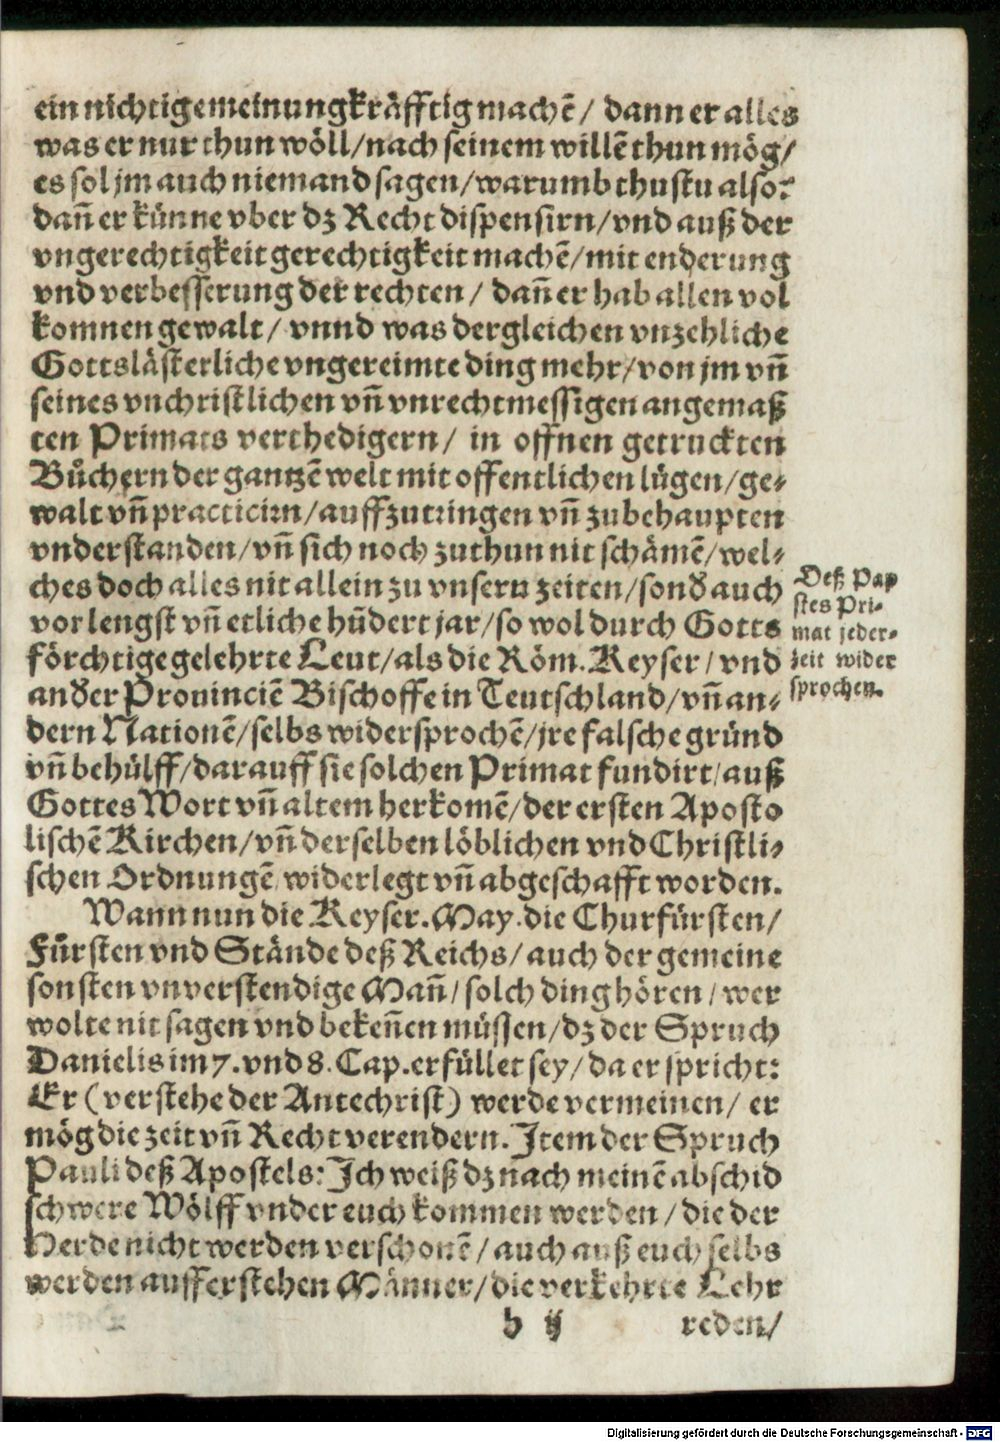 ein nichtige meinung kräfftig machē / dann er alles
was er nur thun wöll/nach seinem willē thun mög/
es sol jm auch niemand sagen/warumb thustu also?
dañ er künne vber dz Recht dispensirn/vnd auß der
vngerechtigkeit gerechtigkeit machē/mit enderung
vnd verbesserung der rechten / dañ er hab allen vol
komnen gewalt / vnnd was dergleichen vnzehliche
Gottslästerliche vngereimte ding mehr/von jm vñ
seines vnchristlichen vñ vnrechtmessigen angemaß
ten Primats verthedigern/ in offnen getruckten
Bůchern der gantzē welt mit offentlichen lügen/ge-
walt vñ practicirn/auffzutringen vñ zubehaupten
vnderstanden/vñ sich noch zuthun nit schämē/wel-
ches doch alles nit allein zu vnsern zeiten/sonď auch
vor lengst vñ etliche hūdert jar/so wol durch Gotts
förchtige gelehrte Leut/als die Röm. Keyser/vnd
anďer Prouinciē Bischoffe in Teutschland/vñ an-
dern Nationē/selbs widersprochē/jre falsche gründ
vñ behülff/darauff sie solchen Primat fundirt/auß
Gottes Wort vñ altem herkomē/der ersten Aposto
lischē Kirchen/vñ derselben löblichen vnd Christli-
schen Ordnungē widerlegt vñ abgeschafft worden.
Wann nun die Keyser. May. die Churfürsten/
Fůrsten vnd Stände deß Reichs/auch der gemeine
sonsten vnverstendige Mañ/solch ding hören/wer
wolte nit sagen vnd bekeñen müssen/dz der Spruch
Danielis im 7. vnd 8. Cap. erfüllet sey/da er spricht:
Er (verstehe der Antechrist) werde vermeinen/ er
mög die zeit vñ Recht verendern. Item der Spruch
Pauli deß Apostels: Ich weiß dz nach meinē abschid
schwere Wölff vnder euch kommen werden/die der
Herde nicht werden verschonē/auch auß euch selbs
werden aufferstehen Männer/die verkehrte Lehr
b ij reden/
Deß Pap
stes Pri-
mat jeder-
zeit wider
sprochen.
Digitalisierung gefördert durch die Deutsche Forschungsgemeinschaft - DFG